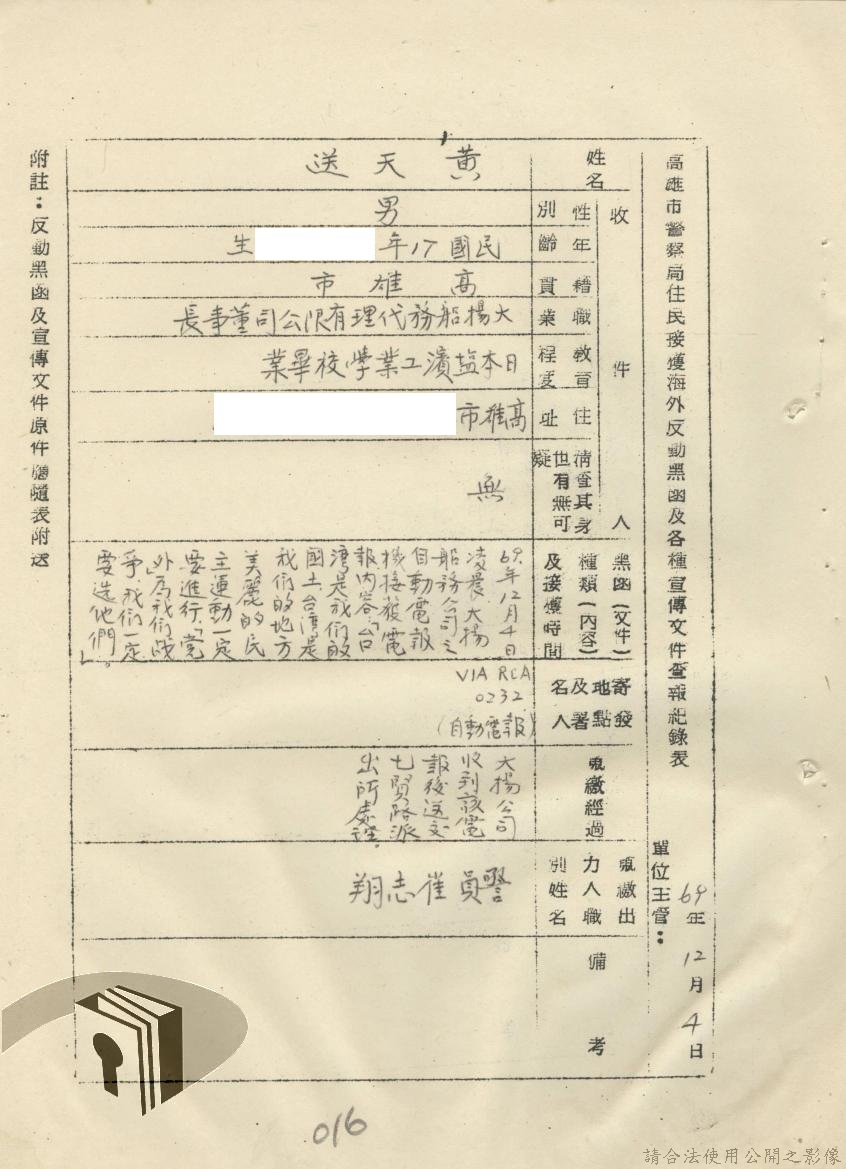 高雄市警察局住民接獲海外反動黑函及各種宣傳文件查報紀錄表
單位主管：
69年12月4日
收件人
姓名
黃天送
性別
男
年齡
民國17年
生
籍貫
高雄市
職業
大楊船務代理有限公司董事長
教育程度
日本塩濱工業學校畢業
住址
高雄市
清查其身世有無可疑
無
黑函(文件)
種類(內容)
及接獲時間
69年12月4日
凌晨大楊
船務公司之
自動電報
機接獲電
報內容「台
灣是我們的
國土台灣是
我們的地方
美麗的民
主運動一定
要進行「党
外」為我們戰
爭我們一定
要選他們
」。
寄發地點及署名人
VIA RCA
0232
(自動電報)
繳經過
大揚公司
收到該電
報後送交
七賢路派
出所處理。
繳出力人職別姓名
警員崔志翔
備考
附註：反動黑函及宣傳文件原件應隨表附送
016
請合法使用公開之影像